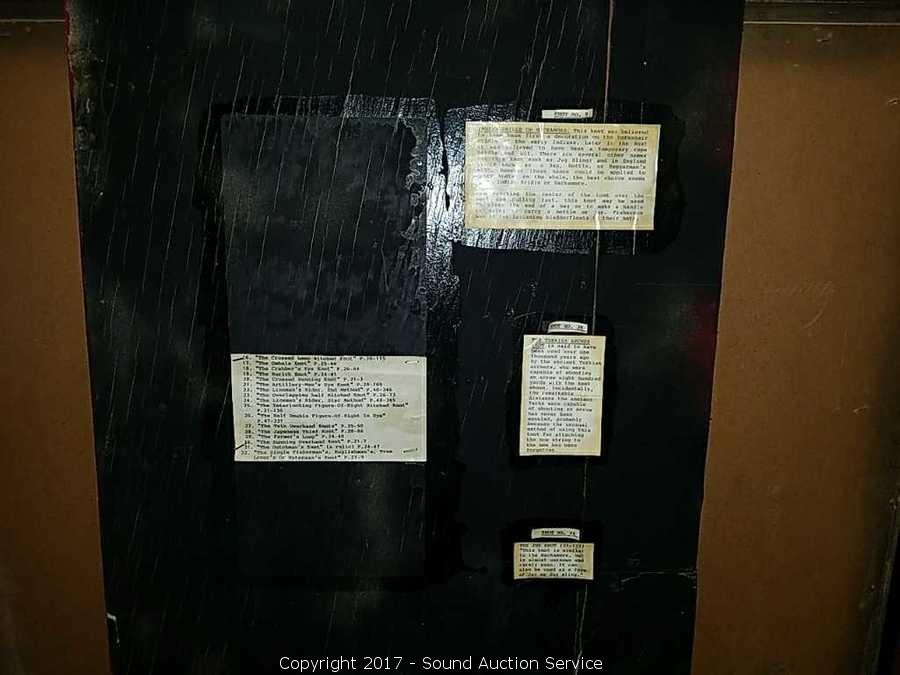 "The Crossed Loop Hitched Knot" P.38-115
17. "The Omhala Knot" P.25-44
18. "The Crabber's Eye Knot" P.26-64
19. "The Zurich Knot" P.34-41
20. "The Crossed Running Knot" P.21-3
21. "The Artillery-Man's Eye Knot" P.28-100
22. "The Lineman's Rider, 2nd Method" P.40-346
23. "The Overlapping Half Hitched Knot" P.26-73
24. "The Lineman's Rider, 31st Method" P.40-345
25. "The Interlocking Figure-Of-Eight Hitched Knot"
P.31-150
26. "The Half Double Figure-Of-Eight In Eye"
P.47-221
27. "The Twin Overhand Knots" P.25-60
28. "The Japanese Thief Knot" P.28-86
29. "The Farmer's Loop" P.34-40
30. "The Running Overhand Knot" P.21-7
31. "The Dutchman's Knot" (A relic) P.24-47
32. "The Single Fisherman's, Englishman's, True
Lover's Or Waterman's Knot" P.23-9
KNOT NO. 9
This knot was believed
to have been first a decoration on the horsehair
bridle of the early Indians. Later in the West
it was believed to have been a temporary rope
bridle and bit. There are several other names
such as Jug Sling; and in England
it is known as a Bag, Bottle, or Beggarman's
these names could be applied to
on the whole, the best choice seems
Indian Bridle or Hackamore.
the center of the knot over the
and pulling taut, this knot may be used
to close the end of a bag or to make a handle
to carry a bottle or jug. Fisherman
use it in fastening bladderfloats to their nets.
KNOT NO. 28
A TURKISH ARCHER
KNOT is said to have
been used over one
thousand years ago
by the ancient Turkish
archers, who were
capable of shooting
an arrow eight hundred
yards with the knot
shown. Incidentally,
the remarkable
distance the ancient
Turks were capable
of shooting an arrow
has never been
equaled, probably
because the unusual
method of using this
knot for attaching
the bow string to
the bow has been
forgotten.
KNOT NO.
THE JUG KNOT
"This knot is similar
to the Hackamore, but
is almost unknown and
rarely seen. It can
also be used as a form
of Jar or Jug sling."
Copyright 2017 - Sound Auction Service